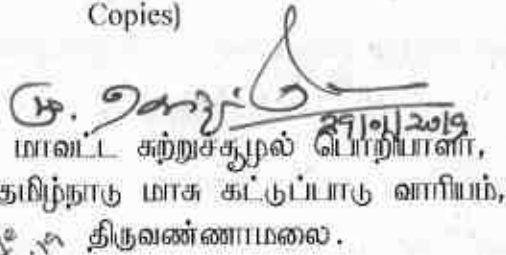 Copies)
29/01/2019
மாவட்ட சுற்றுச்சூழல் பொறியாளர்,
தமிழ்நாடு மாசு கட்டுப்பாடு வாரியம்,
திருவண்ணாமலை.